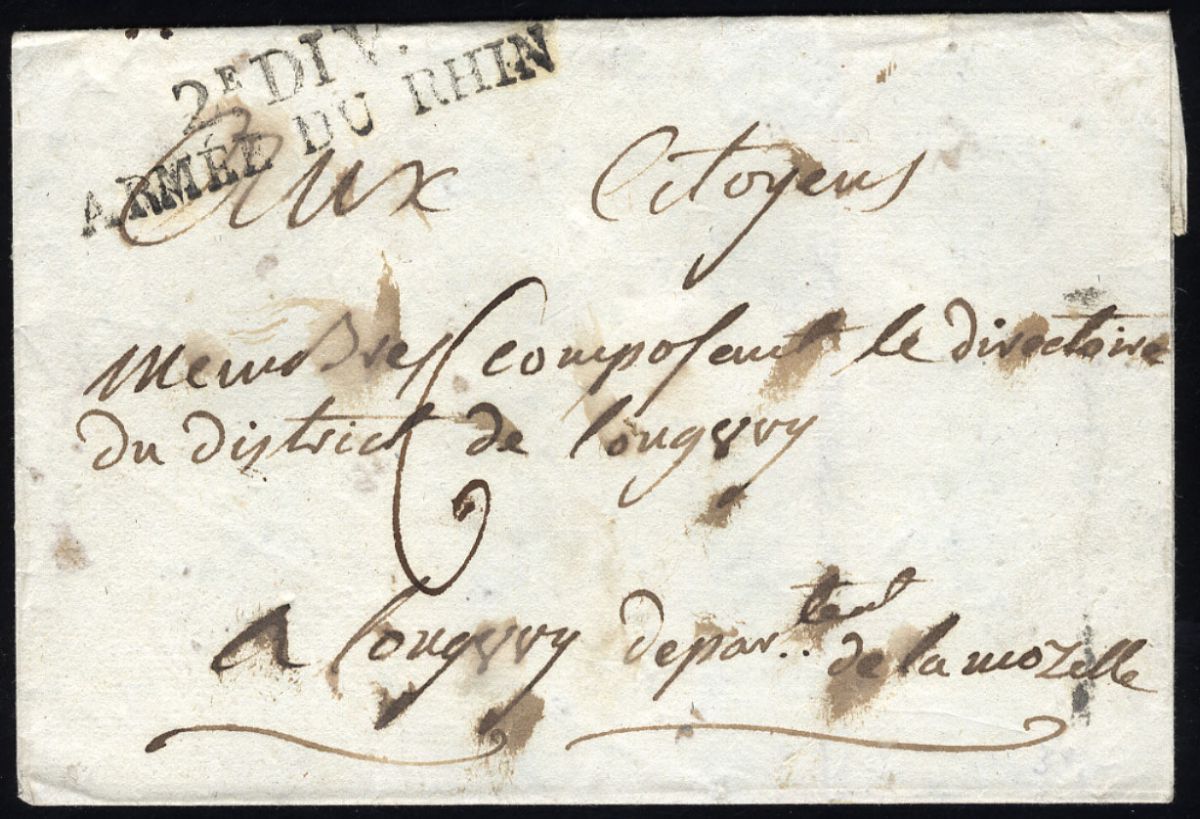 2E DIV.
ARMÉE DU RHIN
Aux Citoyens
Membres composant le directoire
du district de longvvy
6
a longvvy depar..tent de la mozelle